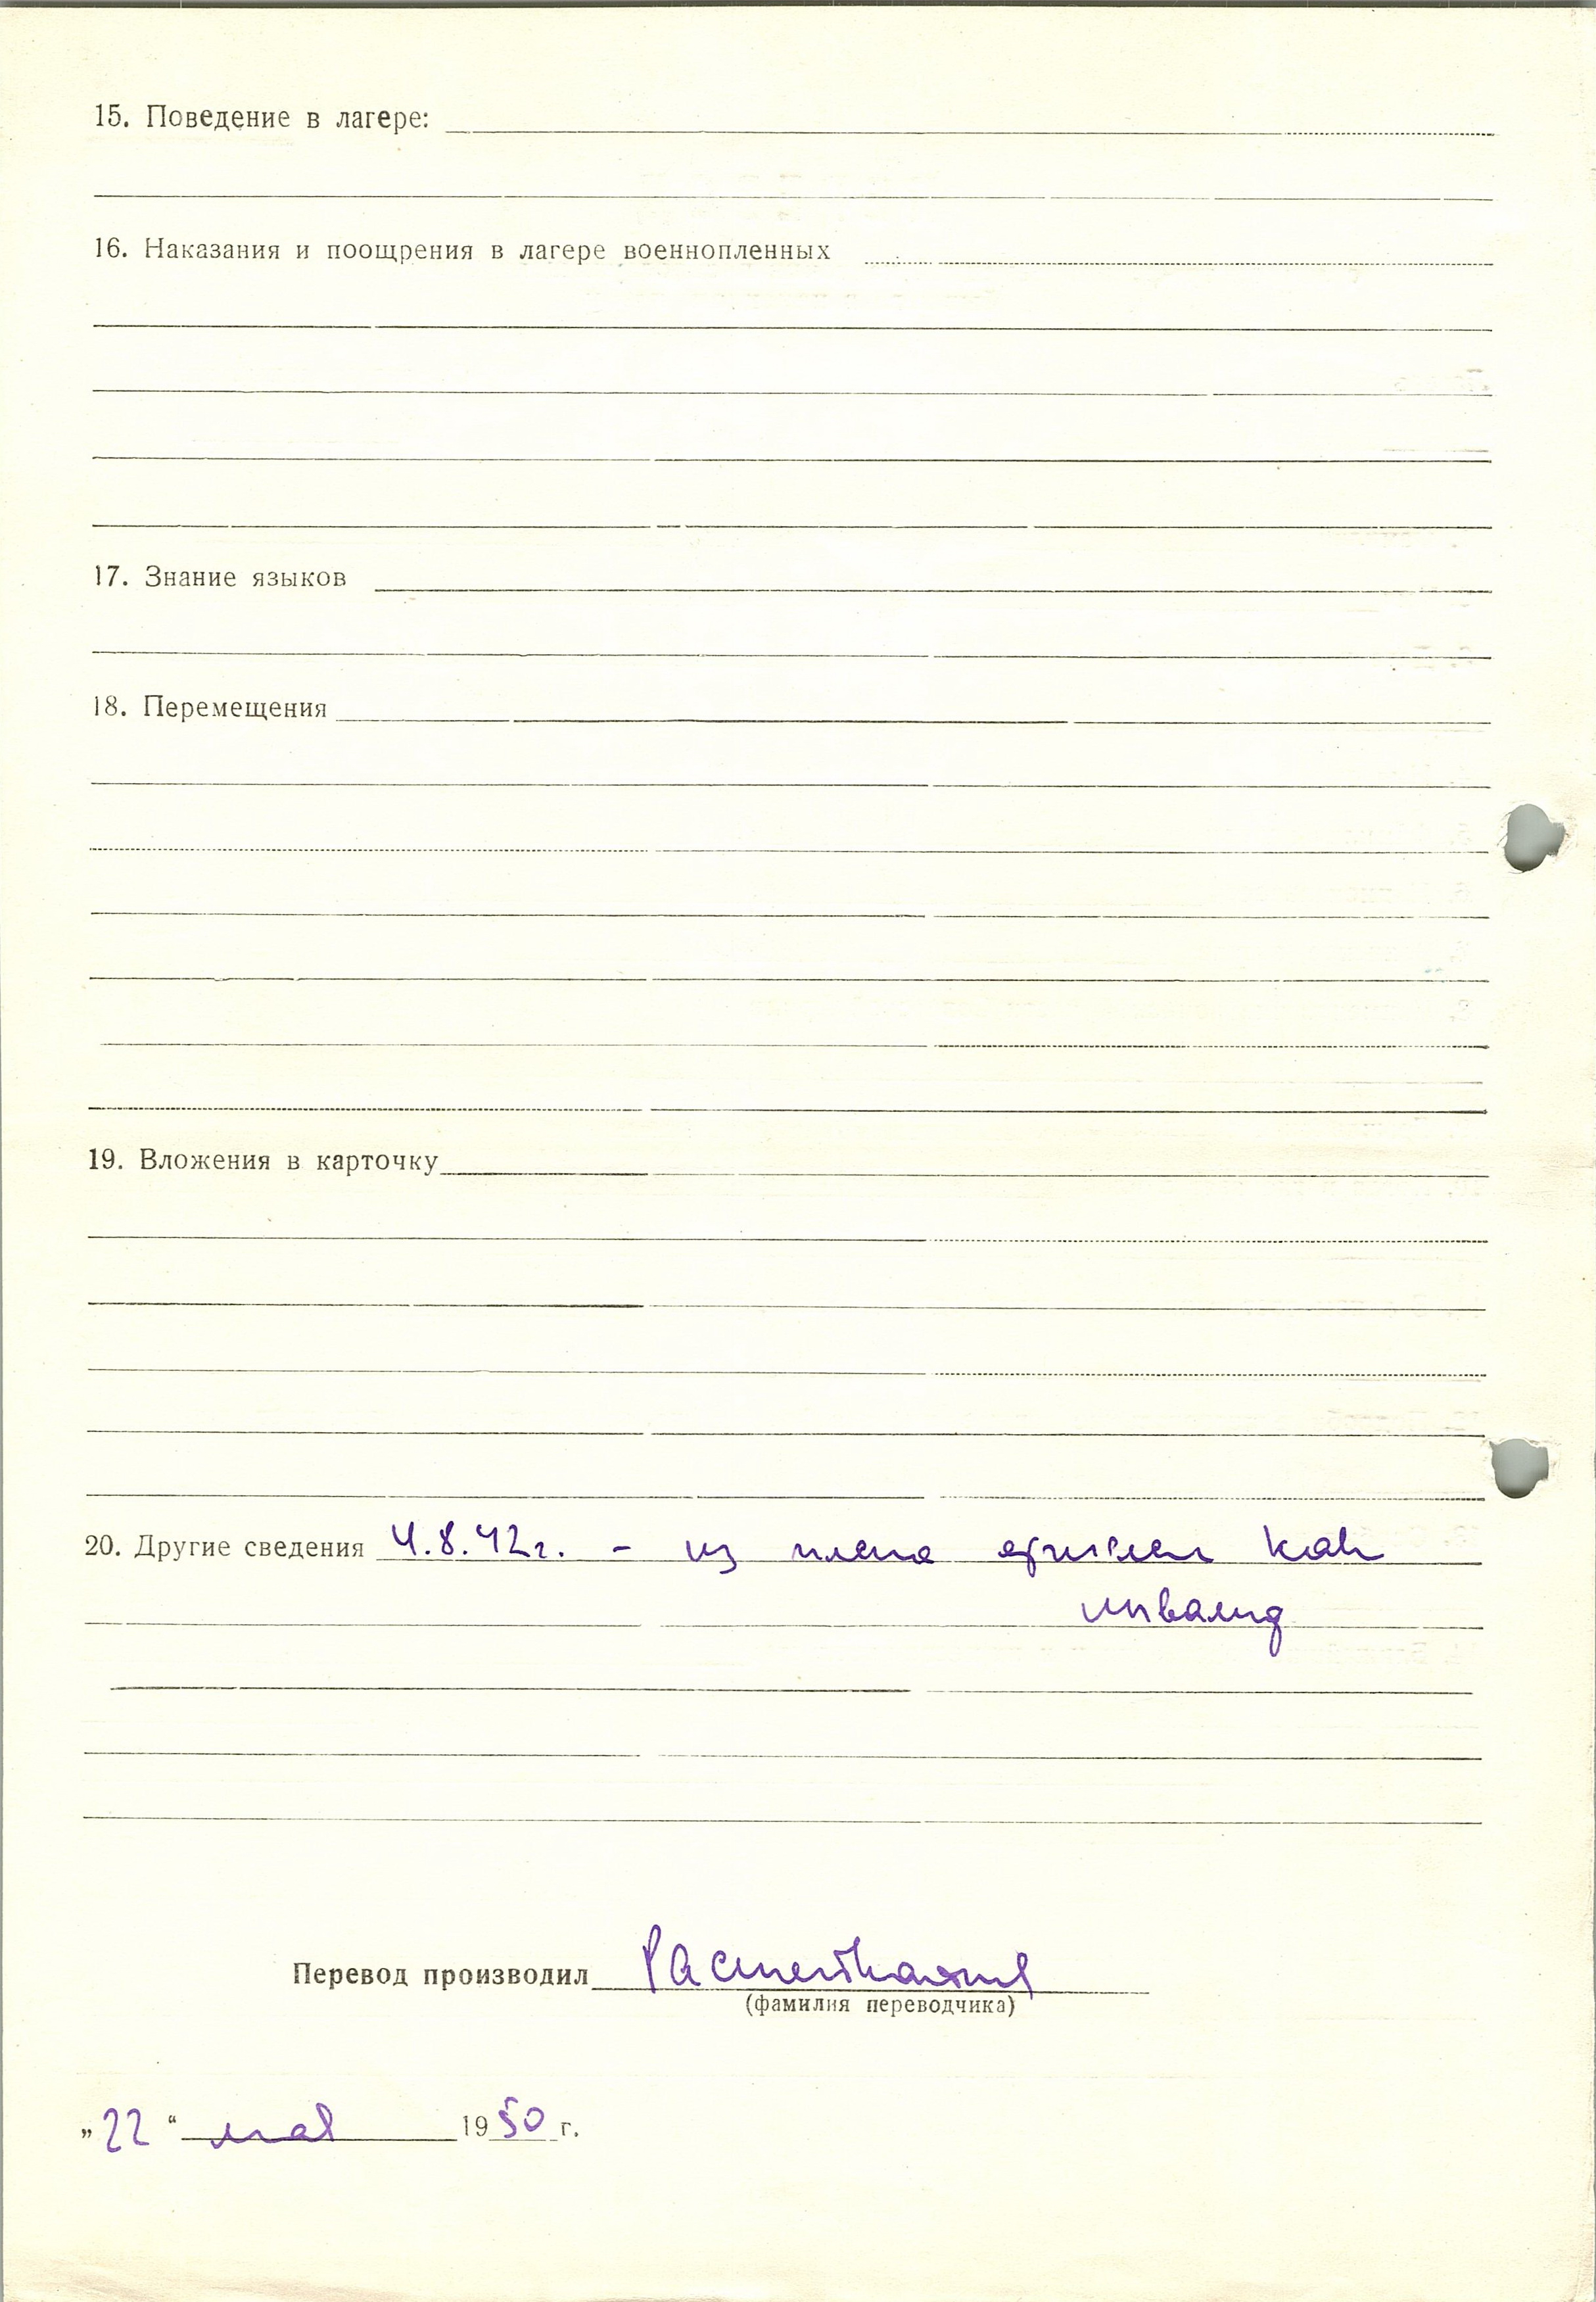 15. Поведение в лагере:
16. Наказания и поощрения в лагере военнопленных
17. Знание языков
18. Перемещения
19. Вложения в карточку
20. Другие сведения 4.8.42г. - из плена отпущен как
инвалид
Перевод производил
(фамилия переводчика)
„22“ мая 1950 г.